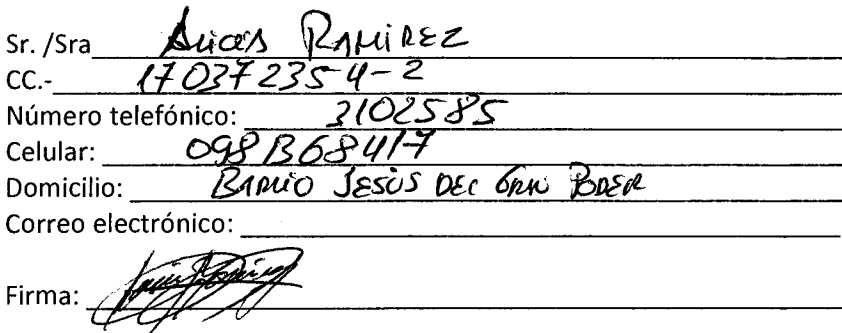 Sr. /Sra Alicia RAMIREZ
CC.- 17037235 4-2
Número telefónico: 3102585
Celular: 098 1368417
Domicilio: BARRIO JESÚS DEL GRAN PODER
Correo electrónico:
Firma: